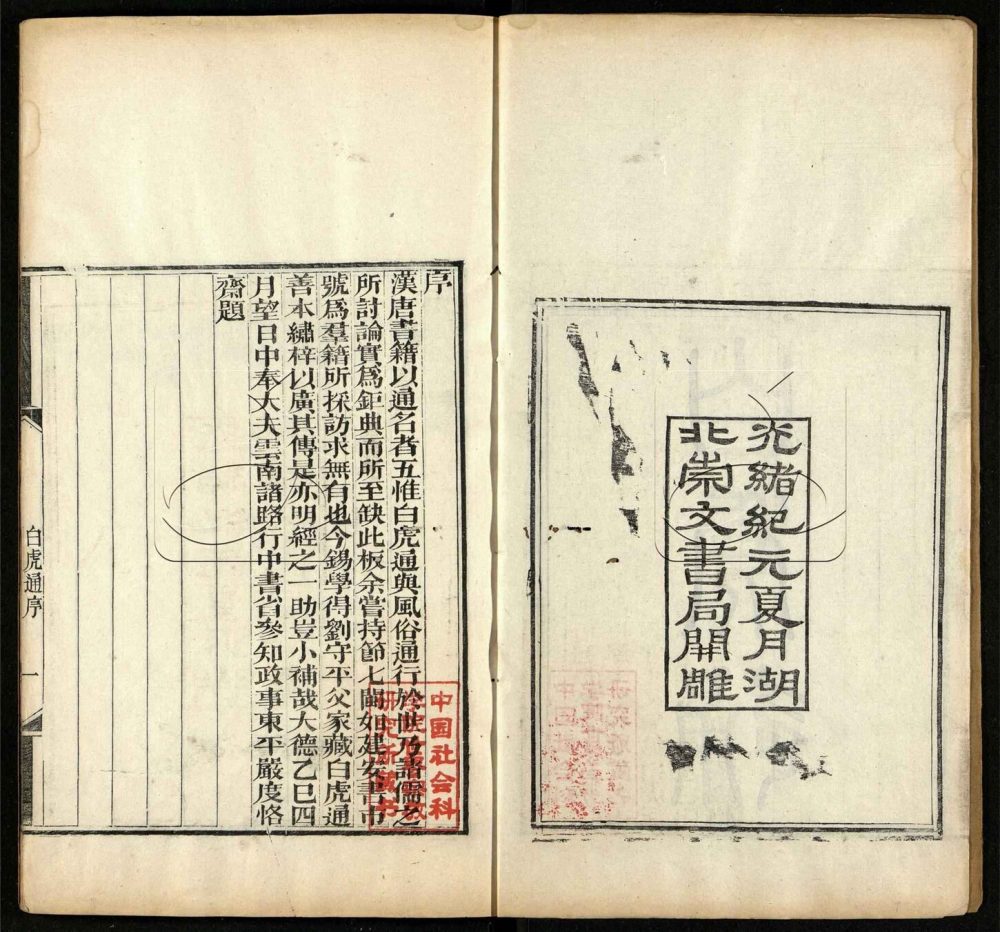 光緒紀元夏月湖
北崇文書局開雕
序
漢唐書籍以通名者五惟白虎通與風俗通行於世乃諸儒之
所討論實爲鉅典而所至缺此板余嘗持節七閩如建安書市
號爲羣籍所採訪求無有也今錫學得劉守平父家藏白虎通
善本繡梓以廣其傳是亦明經之一助豈小補哉大德乙巳四
月望日中奉大夫雲南諸路行中書省參知政事東平嚴度恪
齋題
白虎通序
一
中国社会科
研究所藏书